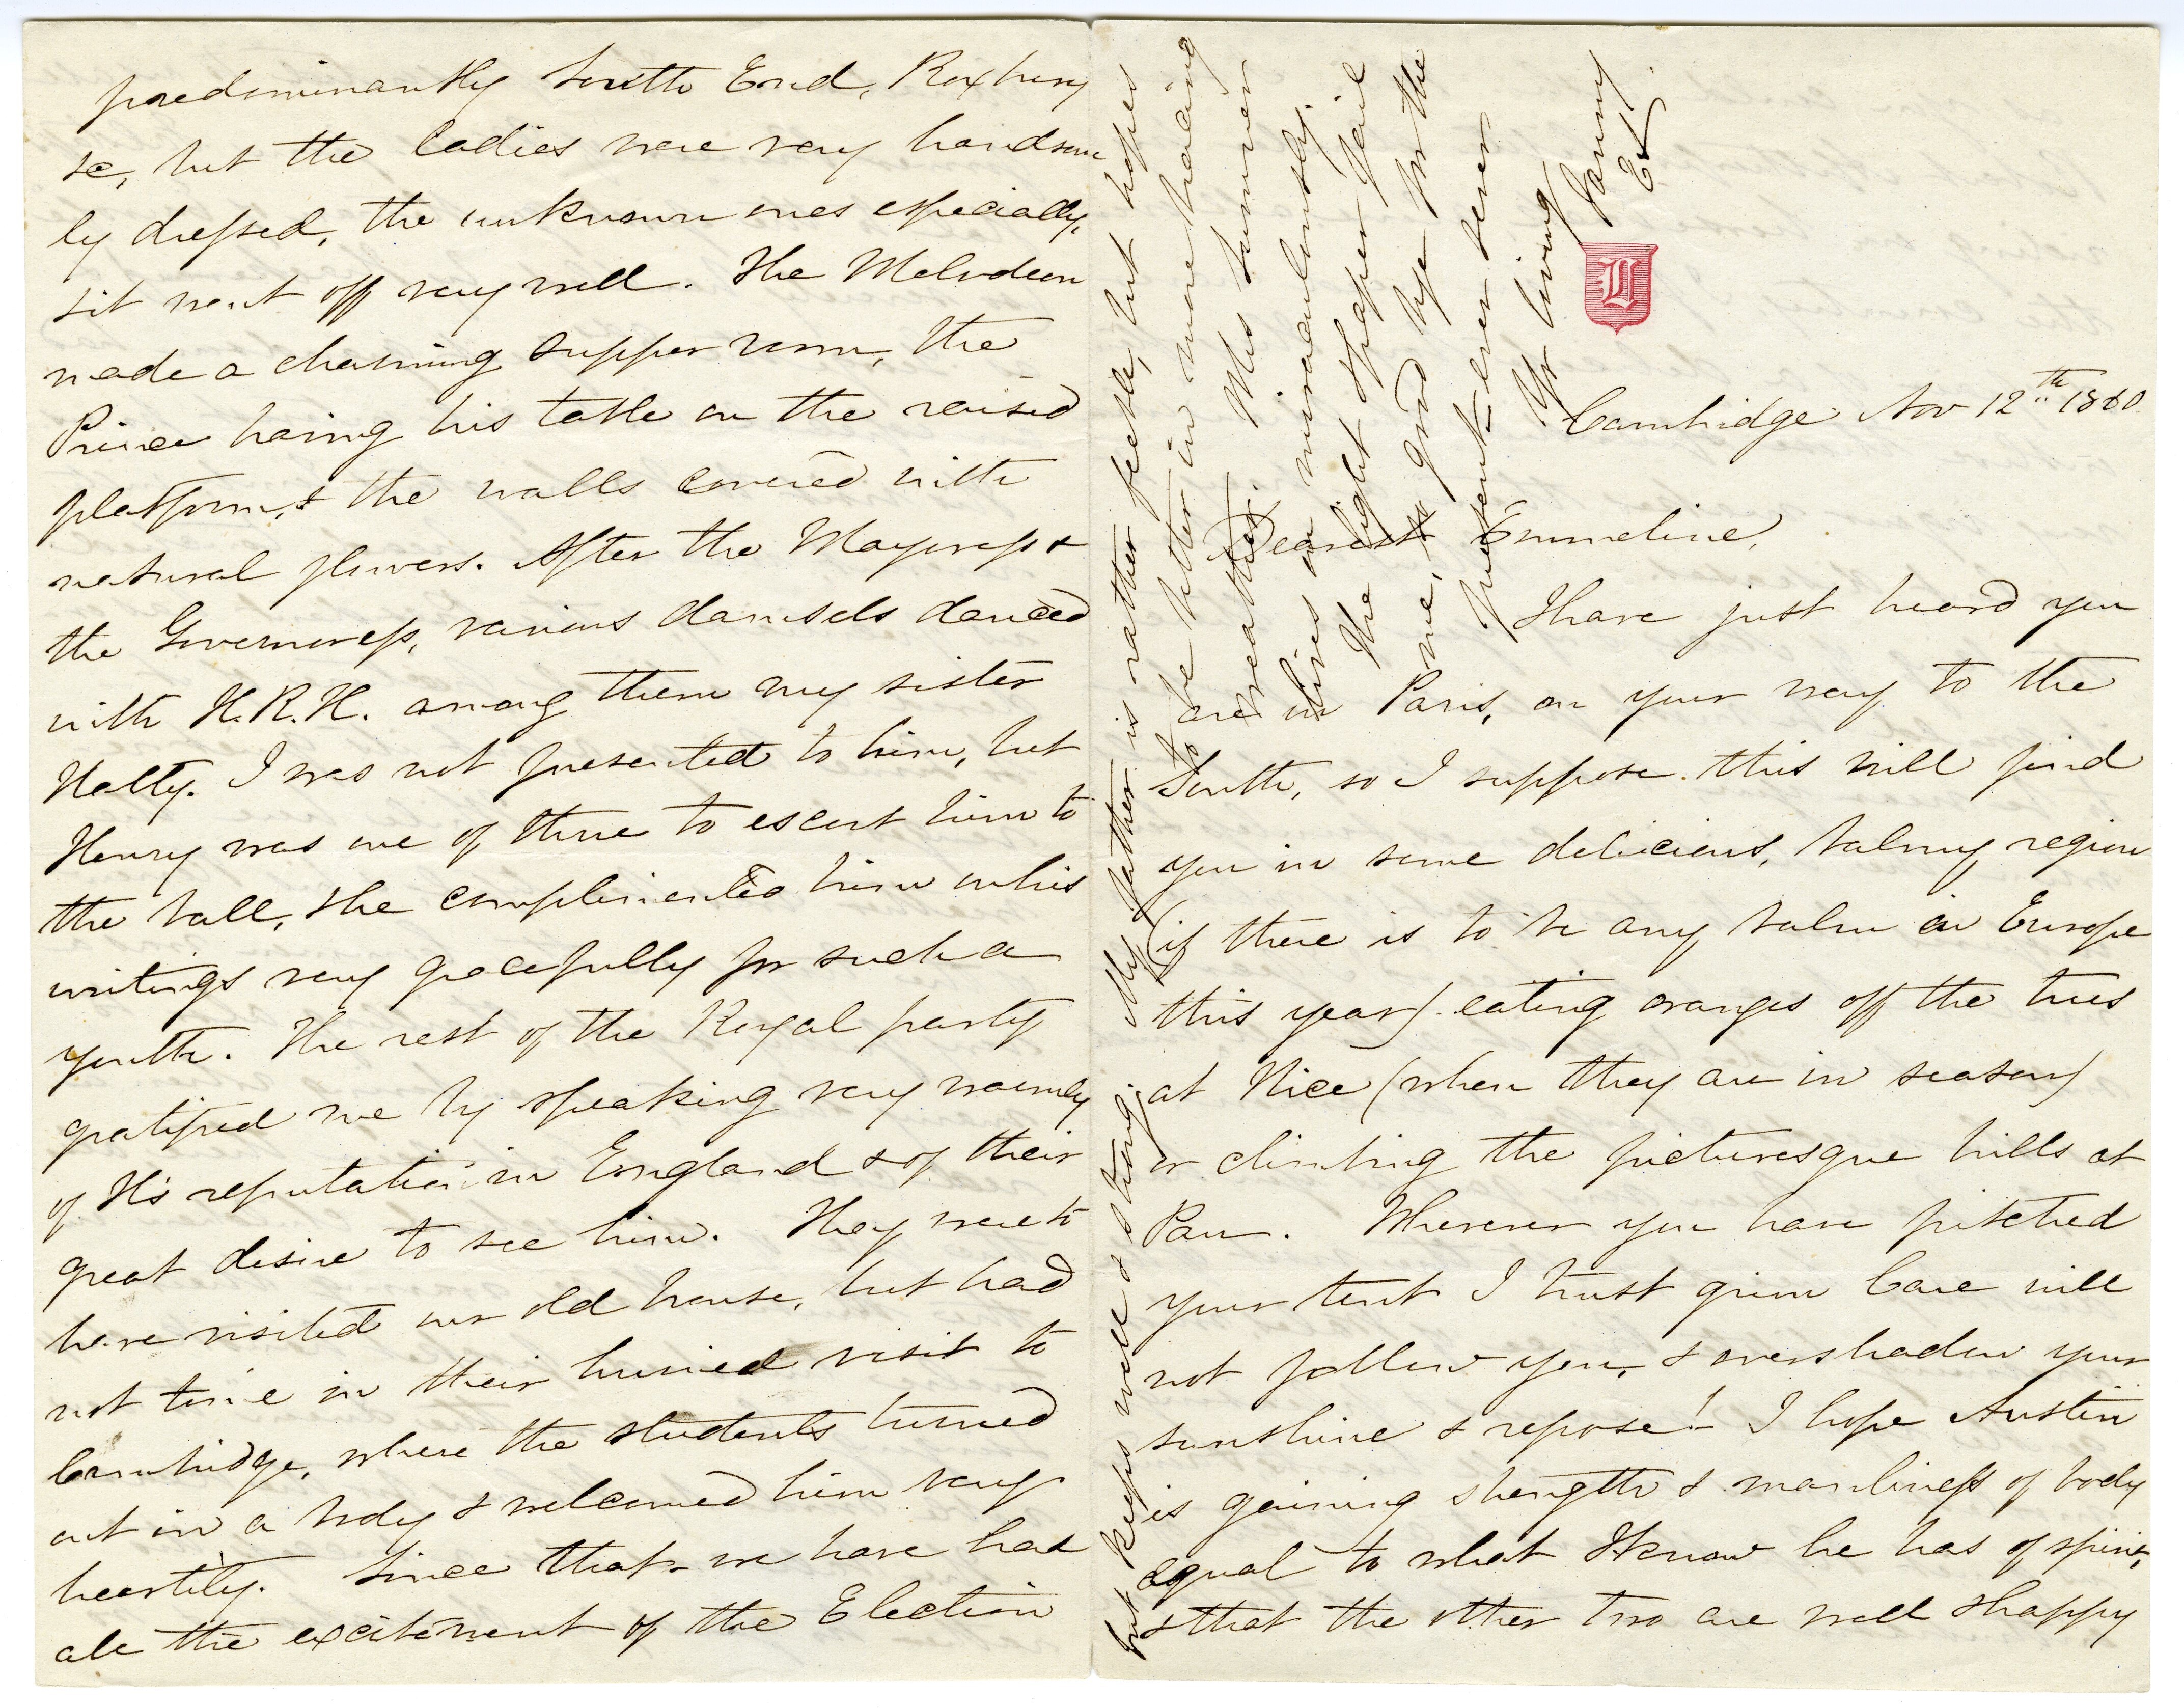 predominantly South End, Roxbury
&c, but the ladies were very handsome
ly dressed, the unknown ones especially,
& it went off very well. The Melodeon
made a charming supper room, the
Prince having his table on the raised
platform, & the walls covered with
natural flowers. After the Mayoress &
the Governoress, various damsels danced
with H.R.H. among them my sister
Hatty. I was not presented to him, but
Henry was one of three to escort him to
the ball, & he complimented him on his
writings very gracefully for such a
youth. The rest of the Royal party
gratified me by speaking very warmly
of H's reputation in England & of their
great desire to see him. They were to
have visited our old house, but had
not time in their hurried visit to
Cambridge, where the students turned
out in a body & welcomed him very
heartily. Since that we have had
all the excitement of the Election
L
Cambridge Nov 12th 1860.
Dearest Emmeline,
I have just heard you
are in Paris, on your way to the
South, so I suppose this will find
you in some delicious, balmy region
(if there is to be any balm in Europe
this year) eating oranges off the trees
at Nice (when they are in season)
or climbing the picturesque hills at
Pau. Wherever you have pitched
your tent I trust grim Care will
not follow you, & overshadow your
sunshine & repose! I hope Austin
is gaining strength & manliness of body
equal to what I know he has of spirit,
& that the other two are well & happy
but keeps well & strong. My father is rather feeble, but hopes
to be better in more bracing
weather. Mrs Sumner
lives on miraculously.
The light & paper fail
me, so good bye for the
present. ever & ever
Yr loving
Fanny
E L.